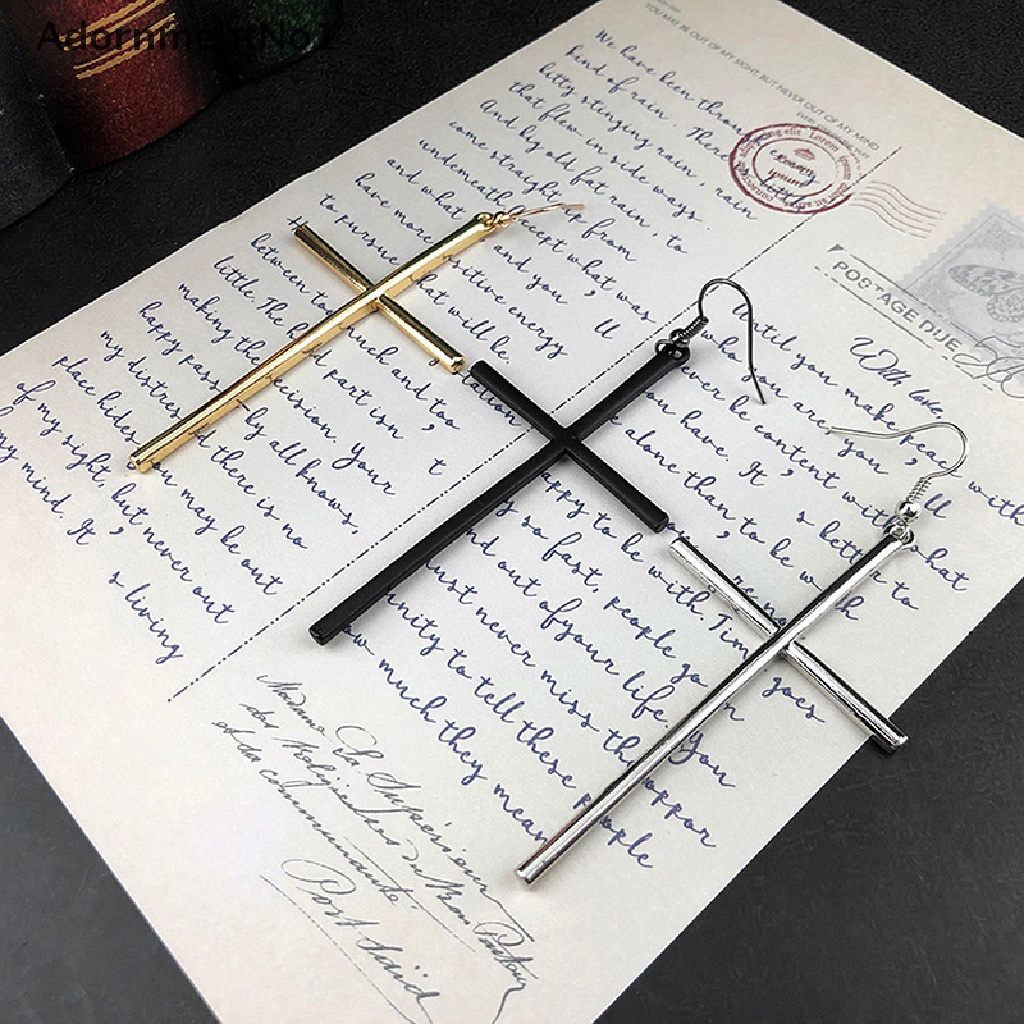 AdornmentNo1
YOU MAY BE OUT OF MY SIGHT, BUT NEVER OUT OF MY MIND
We have been through
kind of rain. There
bitty stinging rain, rain
that flew in side ways.
And big old fat rain, to
come straight up from
underneath. Except what was
and what and you ' ll
have more positive energy
to pursue what will be.
between touch and to
little. The part is on ' t
making the decision. Your
happy pass by all knows,
my distress and there is no
place hides you may be out
of my sight, but never out
my mind. It ' s living
Lorem ipsum
POSTAGE DUE
With love,
Until you make peace with
who you are, you ' ll
never be content with what
you have. It ' s better to
alone than to be with
happy to be with. Time goes
by so fast, people go in
and out of your life. You
must never miss the oppor
unity to tell these people
how much they mean
Madame La Supérieure
des Religieuses du Bon Pasteur
et sa communauté.
Post Saüd